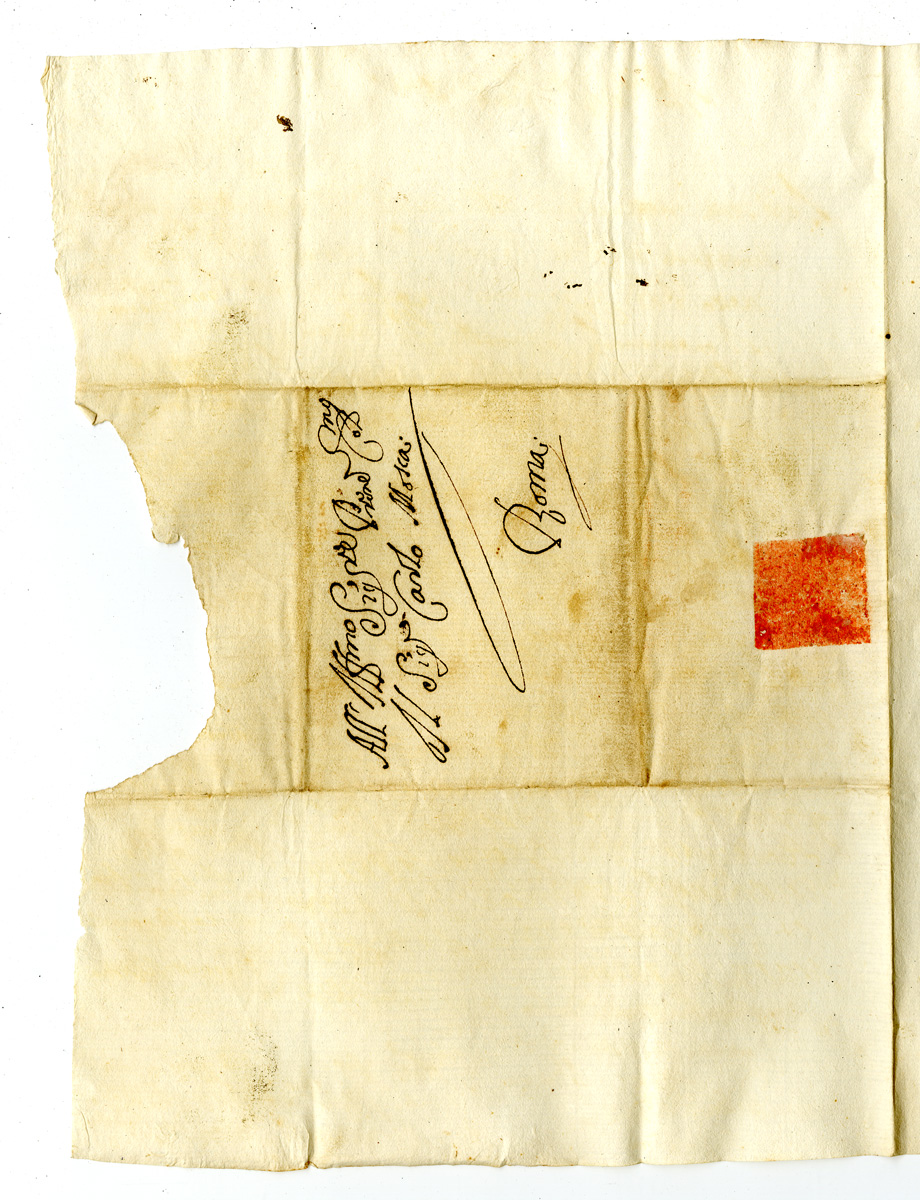 All' Illmo Sigre Prõne Colmo
Il Sigr Carlo Mosca.
Roma.